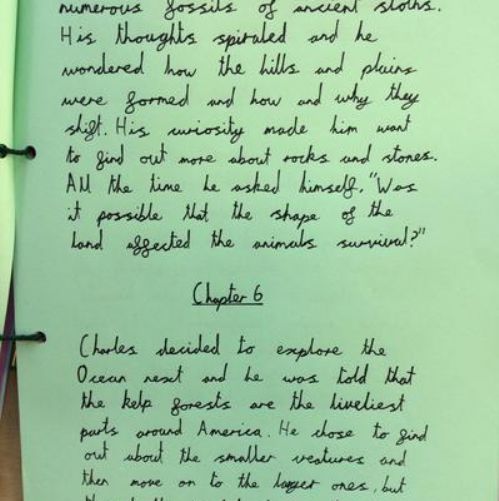 numerous fossils of ancient sloths.
His thoughts spiraled and he
wondered how the hills and plains
were formed and how and why they
shift. His curiosity made him want
to find out more about rocks and stones.
All the time he asked himself, "Was
it possible that the shape of the
land affected the animals survival?"
Chapter 6
Charles decided to explore the
Ocean next and he was told that
the kelp forests are the liveliest
parts around America. He chose to find
out about the smaller creatures and
then move on to the larger ones, but